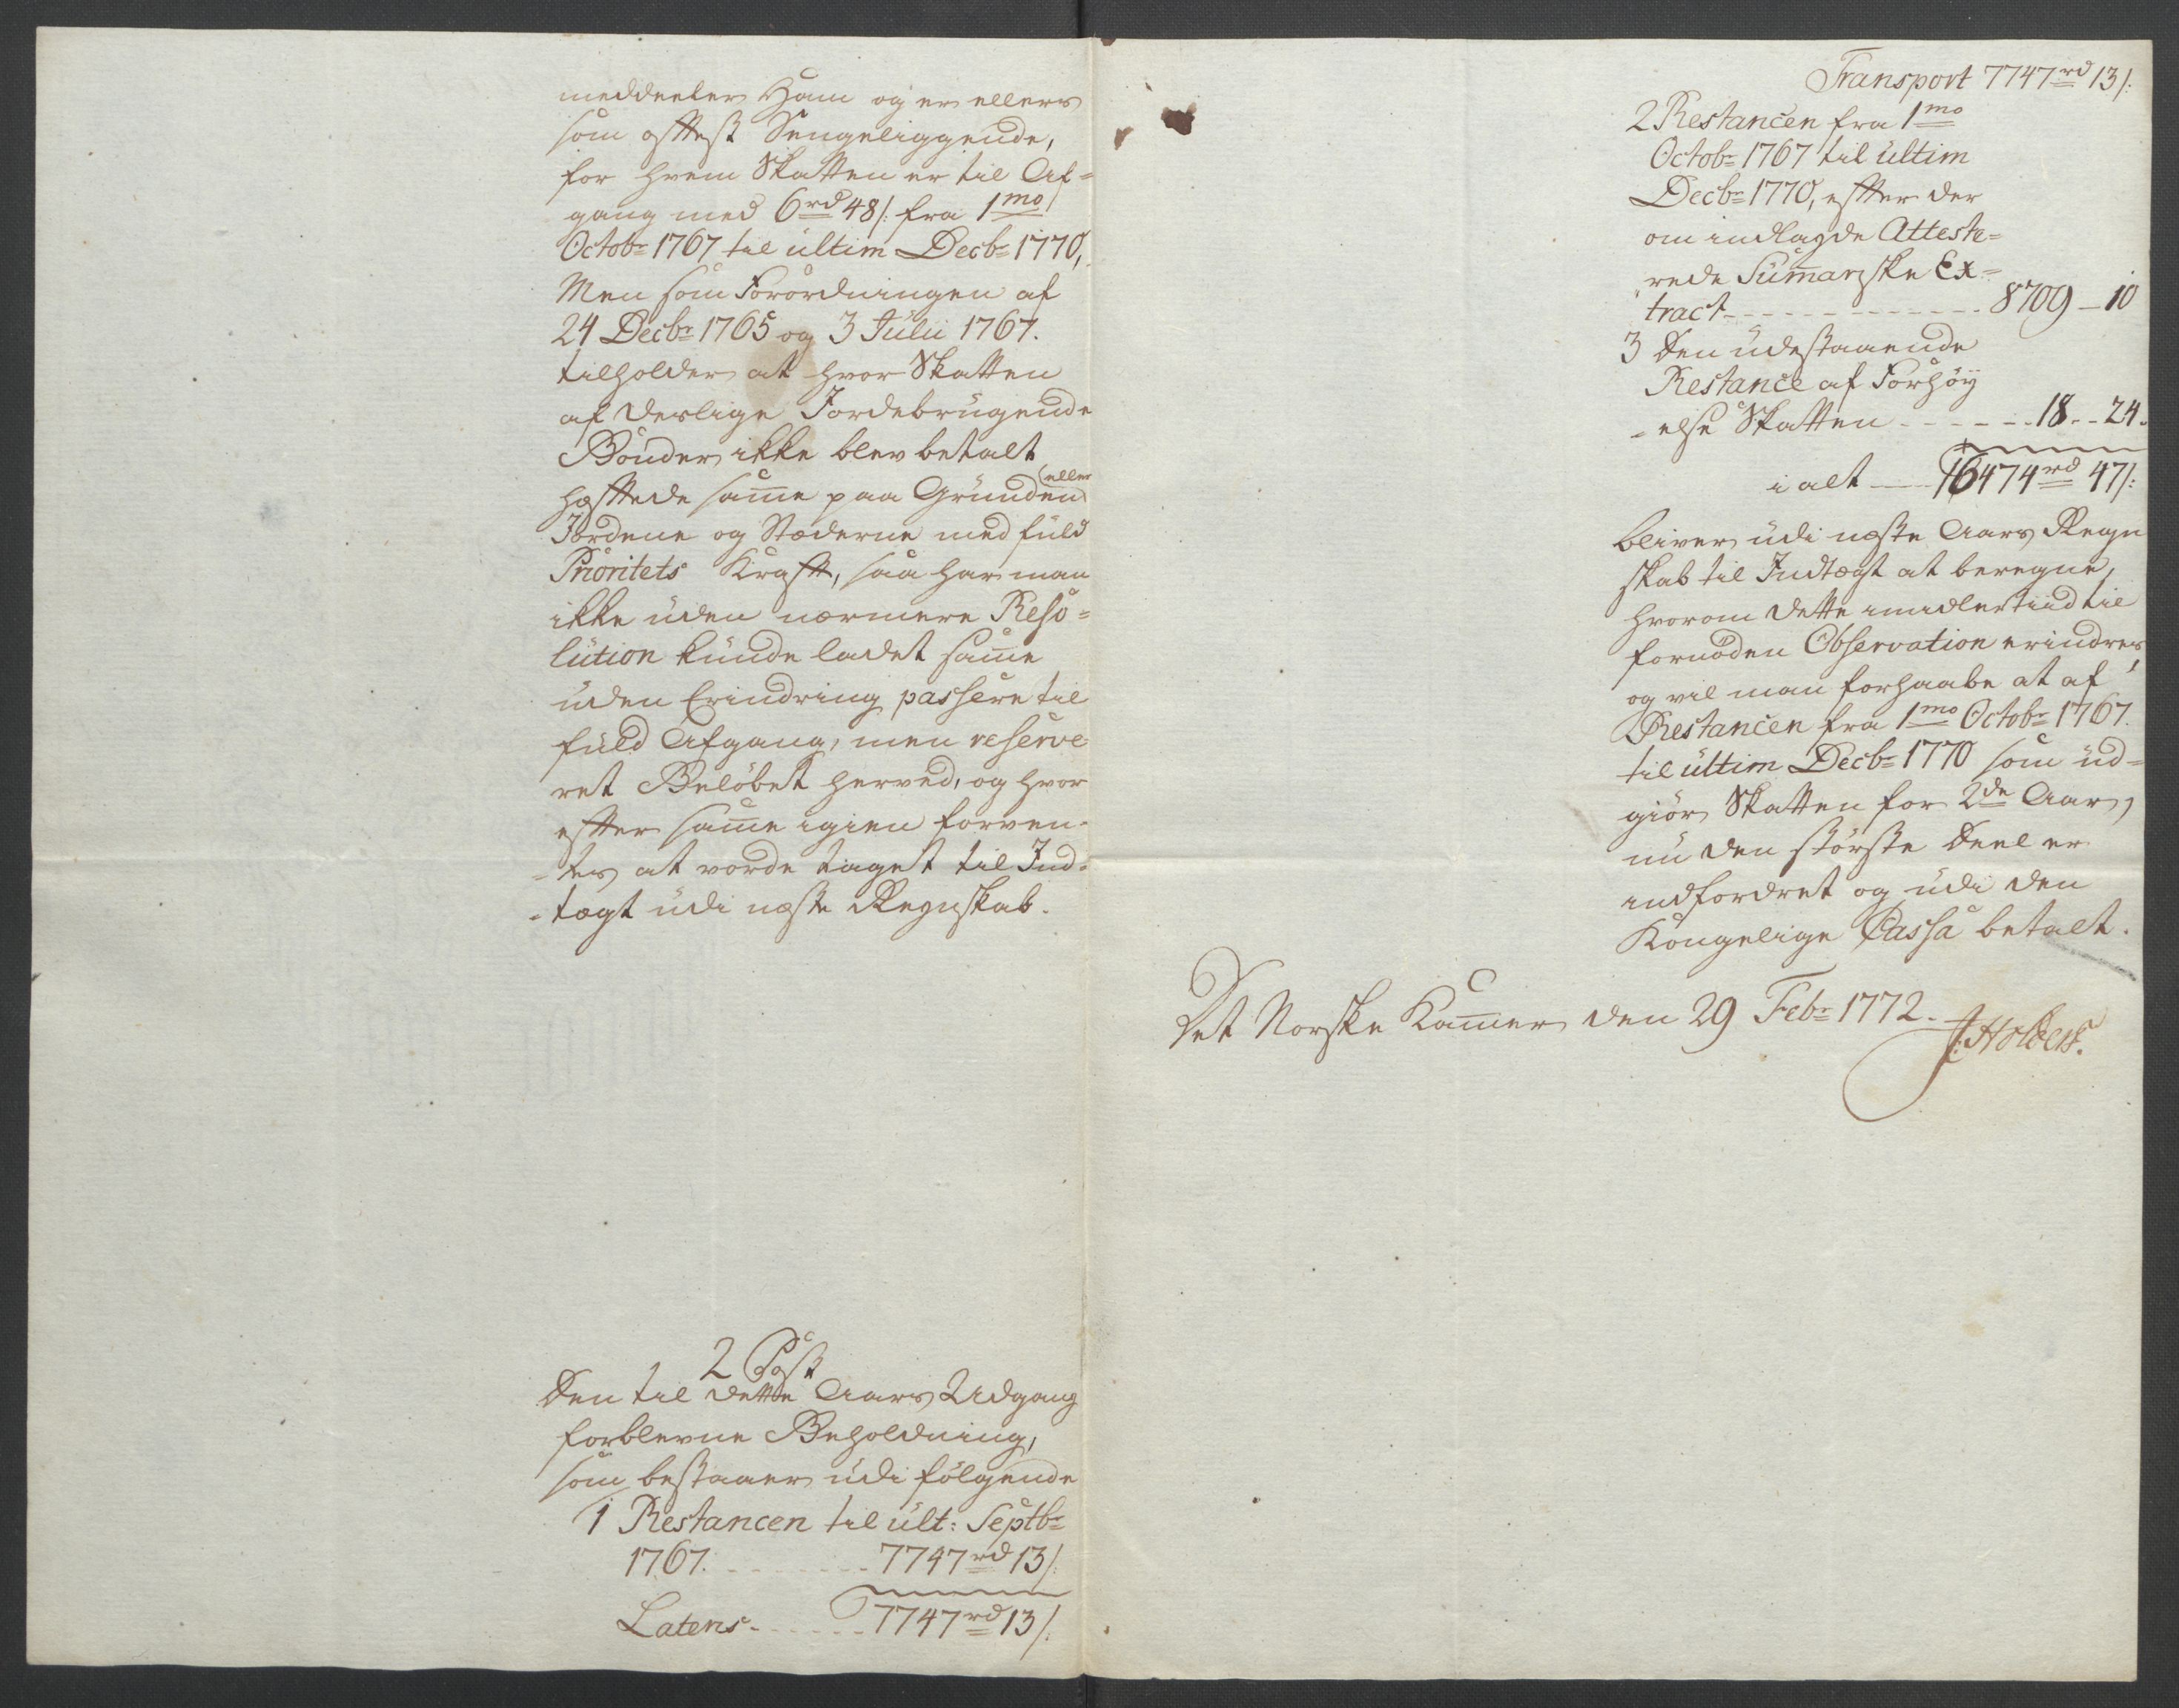 meddeeler Ham og er ellers
som oftest Sengeliggende,
for hvem Skatten er til Af-
gang med 6rd 48/: fra 1mo
Octobr 1767 til ultim Decbr 1770,
Men som Forordningen af
24 Decbr 1765 og 3 Julii 1767.
tilholder at hvor Skatten
af deslige Jordebrugende
Bønder ikke blev betalt
hæftede samme paa Grunden eller
Jordene og Stæderne med fuld
Prioritets Kraft, saa har man
ikke uden nærmere Reso=
lution kunde ladet samme
uden Erindring passere til
fuld Afgang, men reserve
ret Beløbet herved, og hvor
efter samme igien forven-
-tes at vorde taget til Ind-
-tægt udi næste Regnskab.
2 Post
Den til dette Aars Udgang
forblevne Beholdning,
som bestaaer udi følgende
1 Restancen til ult: Septbr
1767. - - - - - - 7747rd 13/:
Latens - - - - - - 7747rd 13/:
Transport 7747rd 13/:
2 Restancen fra 1mo
Octobr 1767 til ultim
Decbr 1770, efter der
om indlagde Atteste=
rede Summariske Ex=
tract - - - - - - - - 8709 - 10
3 Den udestaaende
Restance af Forhøy
-else Skatten - - - - - - 18 - - 24.
i alt — 16474rd 47/:
bliver udi næste Aars Regn
skab til Indtægt at beregne,
hvorom dette imidlertiid til
fornøden Observation erindres,
og vil man forhaabe at af
Restancen fra 1mo Octobr 1767.
til ultim Decbr 1770 som ud-
giør Skatten for 2de Aar,
nu den største Deel er
indfordret og udi den
Kongelige Cassa betalt.
Det Norske Kammer den 29 Febr 1772.